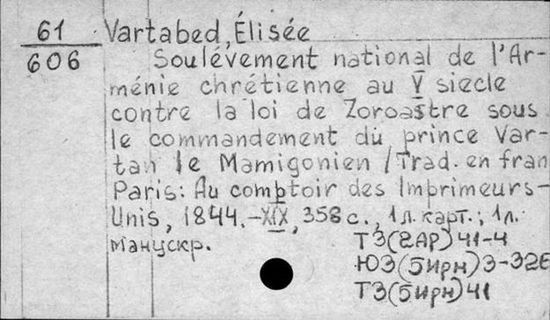 61 Vartabed, Élisée
606 Soulévement national de l'Ar-
ménie chrétienne au V siecle
contre la loi de Zoroastre sous
le commandement du prince Var-
tan le Mamigonien / Trad. en fran
Paris: Au comptoir des Imprimeurs-
Unis, 1844. -XIX, 358 с., 1 л. карт.; 1 л.
манускр.
ТЗ(2АР)41-4
ЮЗ(5ирн)3-32Е
ТЗ(5ирн)41